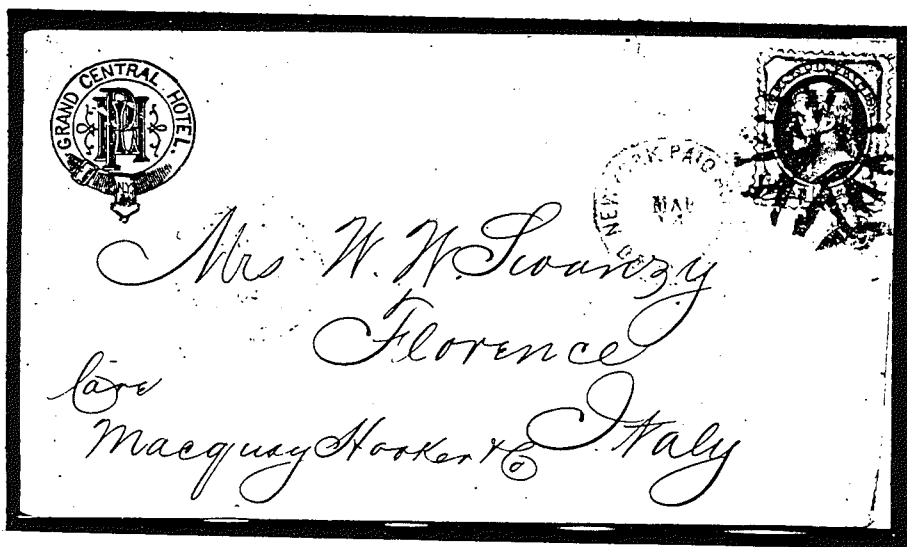 GRAND CENTRAL HOTEL.
NEW YORK PAID
MAR
Mrs W. W. Swanzy
Florence
Italy
Care
Macquay Hooker & Co